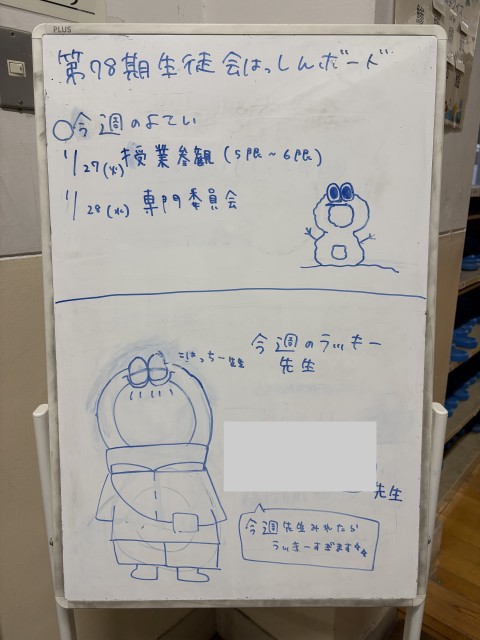 PLUS
第78期生徒会はっしんボード
○今週のよてい
1/27(火)授業参観(5限~6限)
1/28(水)専門委員会
こばっちー先生
今週のラッキー
先生
先生
今週先生みれたら
ラッキーすぎます